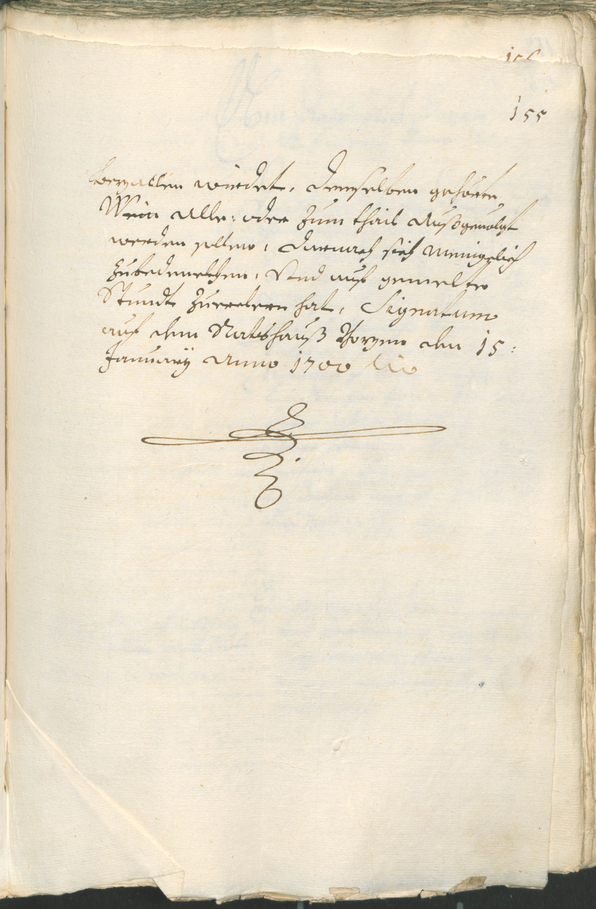 155
bezallen würdet, demselben gehörte
Wein alle: oder zum thail außgevolgt
werden sollen, darnach sich Meniglich
zubedenckhen, Und auf gemelte
Stundt zuerscheinen hat, Signatum
auf dem Rathshauß Bozen den 15:
January anno 1700